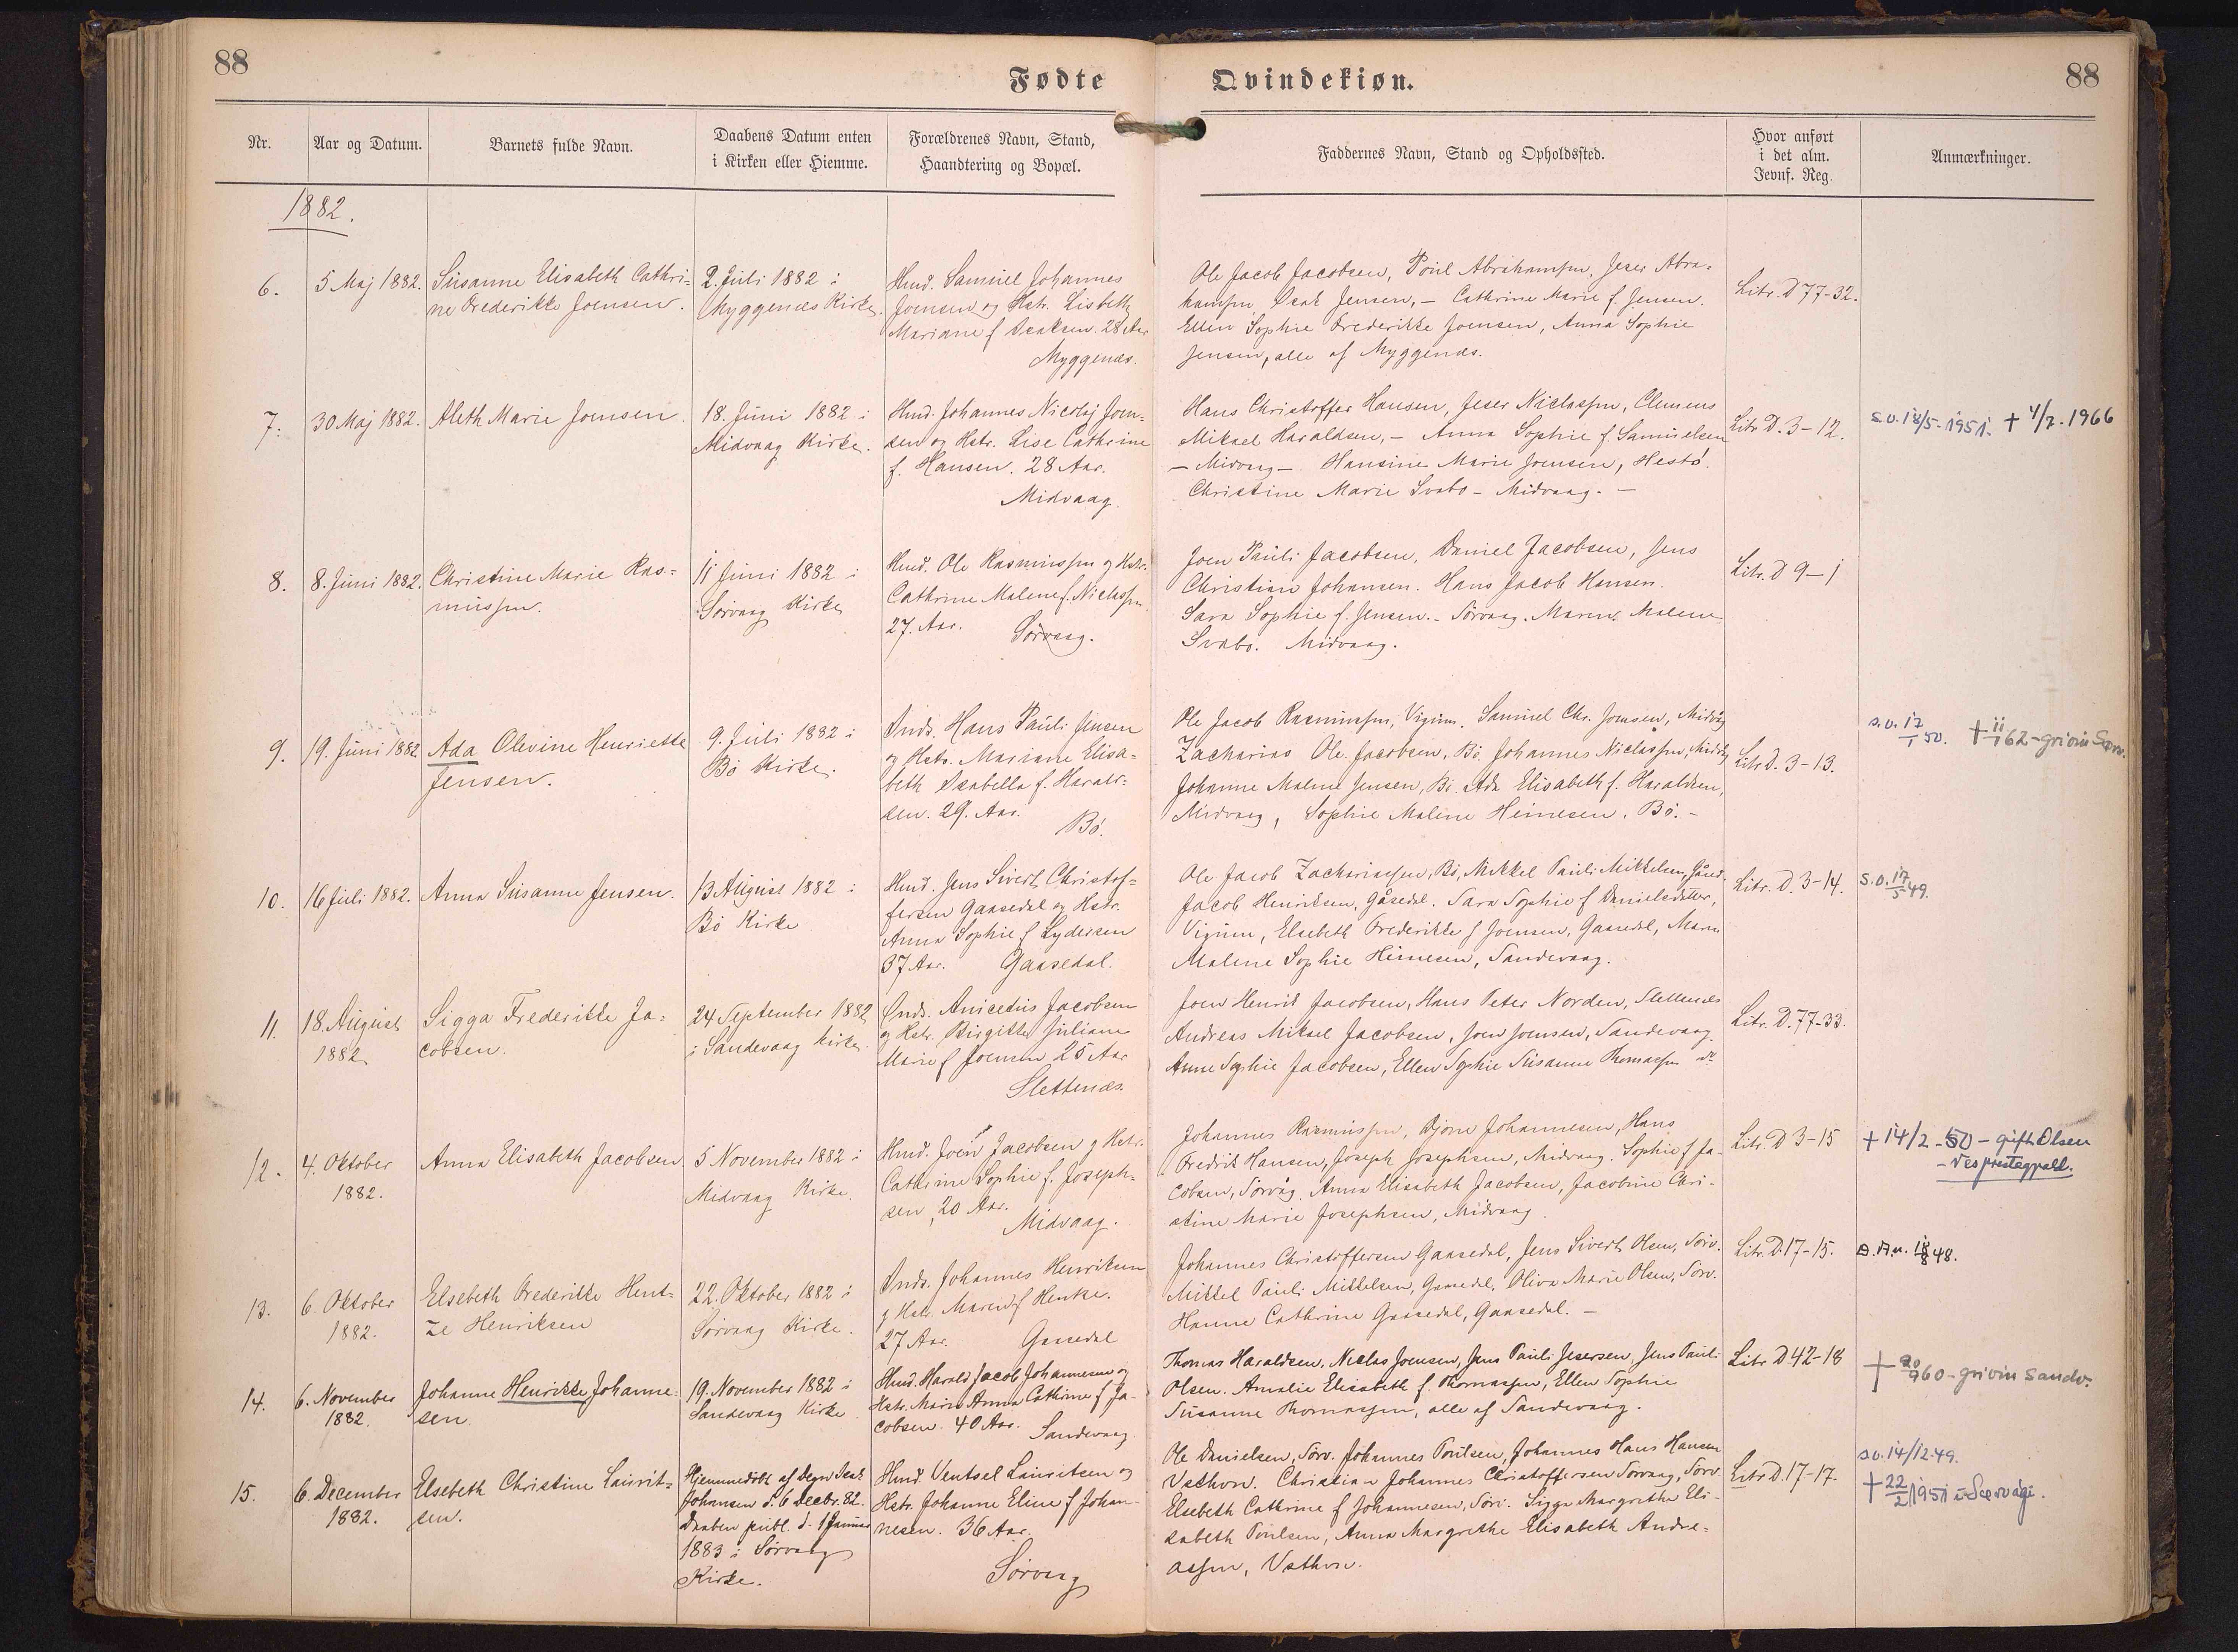 88
Fødte
Qvindekiøn.
88
Nr.
Aar og Datum.
Barnets fulde Navn.
Daabens Datum enten
i Kirken eller Hiemme.
Forældrenes Navn, Stand,
Haandtering og Bopæl.
Faddernes Navn, Stand og Opholdssted.
Hvor anført
i det alm.
Jevnf. Reg.
Anmærkninger.
1882.
6.
5 Maj 1882.
Susanne Elisabeth Cathri-
ne Frederikke Joensen.
2. Juli 1882 i
Myggenæs Kirke.
Hmd. Samuel Johannes
Joensen og Hstr. Lisbeth
Mariane f. Isaksen. 28 Aar
Myggenæs.
Ole Jacob Jacobsen, Poul Abrahamsen, Jeser Abra-
hamsen, Isak Jensen, - Cathrine Marie f. Jensen.
Ellen Sophie Frederikke Joensen, Anna Sophie
Jensen, alle af Myggenæs.
Litr. D 77-32.
7.
30 Maj 1882.
Aleth Marie Joensen.
18. Juni 1882 i
Midvaag Kirke.
Hmd. Johannes Nicolaj Joen-
sen og Hstr. Lise Cathrine
f. Hansen. 28 Aar.
Midvaag
Hans Christoffer Hansen, Jeser Niclassen, Clemens
Mikael Haraldsen, - Anna Sophie f. Samuelsen
- Midvaag - Hansine Marie Joensen, Hestø.
Christine Marie Svabo - Midvaag. -
Litr D. 3-12.
s.v. 18/5-1951. + 4/2. 1966
8.
8. Juni 1882.
Christine Marie Ras-
mussen.
11 Juni 1882 i
Sørvaag Kirke
Hmd. Ole Rasmussen og Hstr.
Cathrine Malene f. Niclassen.
27. Aar. Sørvaag.
Joen Pauli Jacobsen, Daniel Jacobsen, Jens
Christian Johansen. Hans Jacob Hansen.
Sara Sophie f. Jensen. - Sørvaag. Maren Malene
Svabo. Midvaag.
Litr. D 9-1
9.
19. Juni 1882
Ada Olevine Henriette
Jensen.
9. Juli 1882 i
Bø Kirke.
Inds. Hans Pauli Jensen
og Hstr. Mariane Elisa-
beth Isabella f. Harald-
sen. 29. Aar.
Bø.
Ole Jacob Rasmussen, Vigum. Samuel Chr. Joensen, Midvåg
Zacharias Ole Jacobsen, Bø. Johannes Niclassen, Midvåg
Johanne Malene Jensen, Bø. Ada Elisabeth f. Haraldsen,
Midvaag, Sophie Malene Heinesen, Bø. -
Litr D. 3-13.
s.v. 17/1 50. + 11/1 62 - grivin Sørv.
10.
16 Juli 1882.
Anna Susanne Jensen.
13 August 1882 i
Bø Kirke
Hmd. Jens Sivert Christof-
fersen Gaasedal og Hstr.
Anna Sophie f. Lydersen
37 Aar. Gaasedal.
Ole Jacob Zachariassen, Bø, Mikkel Pauli Mikkelsen, Gåsed.
Jacob Henriksen, Gåsedal. Sara Sophie f. Danielsdatter,
Vigum, Elsebeth Frederikke f. Joensen, Gaasedal, Maren
Malene Sophie Heinesen, Sandevaag.
Litr. D. 3-14.
s.v. 17/5 49.
11.
18. August
1882
Sigga Frederikke Ja-
cobsen.
24 September 1882
i Sandevaag Kirke.
Inds. Anicetus Jacobsen
og Hstr. Birgitte Juliane
Marie f. Joensen 25 Aar
Slettenæs.
Joen Henrik Jacobsen, Hans Peter Norden, Slettenæs
Andreas Mikael Jacobsen, Joen Joensen, Sandevaag.
Anne Sophie Jacobsen, Ellen Sophie Susanne Thomassen do
Litr. D. 77-33.
12.
4. Oktober
1882.
Anna Elisabeth Jacobsen
5 November 1882 i
Midvaag Kirke.
Hmd. Joen Jacobsen og Hstr.
Cathrine Sophie f. Joseph-
sen, 20 Aar.
Midvaag.
Johannes Rasmussen, Bjørn Johannesen, Hans
Fredrik Hansen, Joseph Josephsen, Midvaag. Sophie f. Ja-
cobsen, Sørvåg. Anna Elisabeth Jacobsen, Jacobine Chri-
stine Marie Josephsen, Midvaag.
Litr. D 3-15
+ 14/2 - 50 - gift Olsen
- Ves prestagjald.
13.
6. Oktober
1882.
Elsebeth Frederikke Hent-
ze Henriksen
22. Oktober 1882 i
Sørvaag Kirke.
Inds. Johannes Henriksen
og Hstr. Maren f. Hentze.
27 Aar. Gaasedal
Johannes Christoffersen Gaasedal, Jens Sivert Olsen, Sørv.
Mikkel Pauli Mikkelsen, Gaasedal. Oliva Marie Olsen, Sørv.
Hanne Cathrine Gaasedal, Gaasedal. -
Litr. D. 17-15.
18/8 48.
14.
6. November
1882.
Johanne Henrikke Johanne-
sen.
19. November 1882 i
Sandevaag Kirke
Hmd. Harald Jacob Johannesen og
Hstr. Maria Anna Cathrine f. Ja-
cobsen. 40 Aar. Sandevaag
Thomas Haraldsen, Niclas Joensen, Jens Pauli Jesersen, Jens Pauli
Olsen. Amalie Elisabeth f. Thomassen, Ellen Sophie
Susanne Thomassen, alle af Sandevaag.
Litr D 42-18
+ 20/9 60 - grivin Sandv.
15.
6. December
1882.
Elsebeth Christine Laurit-
sen.
Hjemmedøbt af Degn Isak
Johansen d. 6 Decbr. 82.
Daaben publ. d. 1 Januar
1883 i Sørvaag
Kirke.
Hmd. Ventsel Lauritsen og
Hstr. Johanne Eline f. Johan-
nesen. 36 Aar.
Sørvaag
Ole Danielsen, Sørv. Johannes Poulsen, Johannes Hans Hansen
Vesthorn. Christian Johannes Christoffersen Sørvaag, Sørv.
Elsebeth Cathrine f. Johannesen, Sørv. Sigga Margrethe Eli-
sabeth Poulsen, Anna Margrethe Elisabeth Andre-
assen, Vesthorn.
Litr D. 17-17.
s.v. 14/12.49.
+ 22/2 1951 í Sørvági.